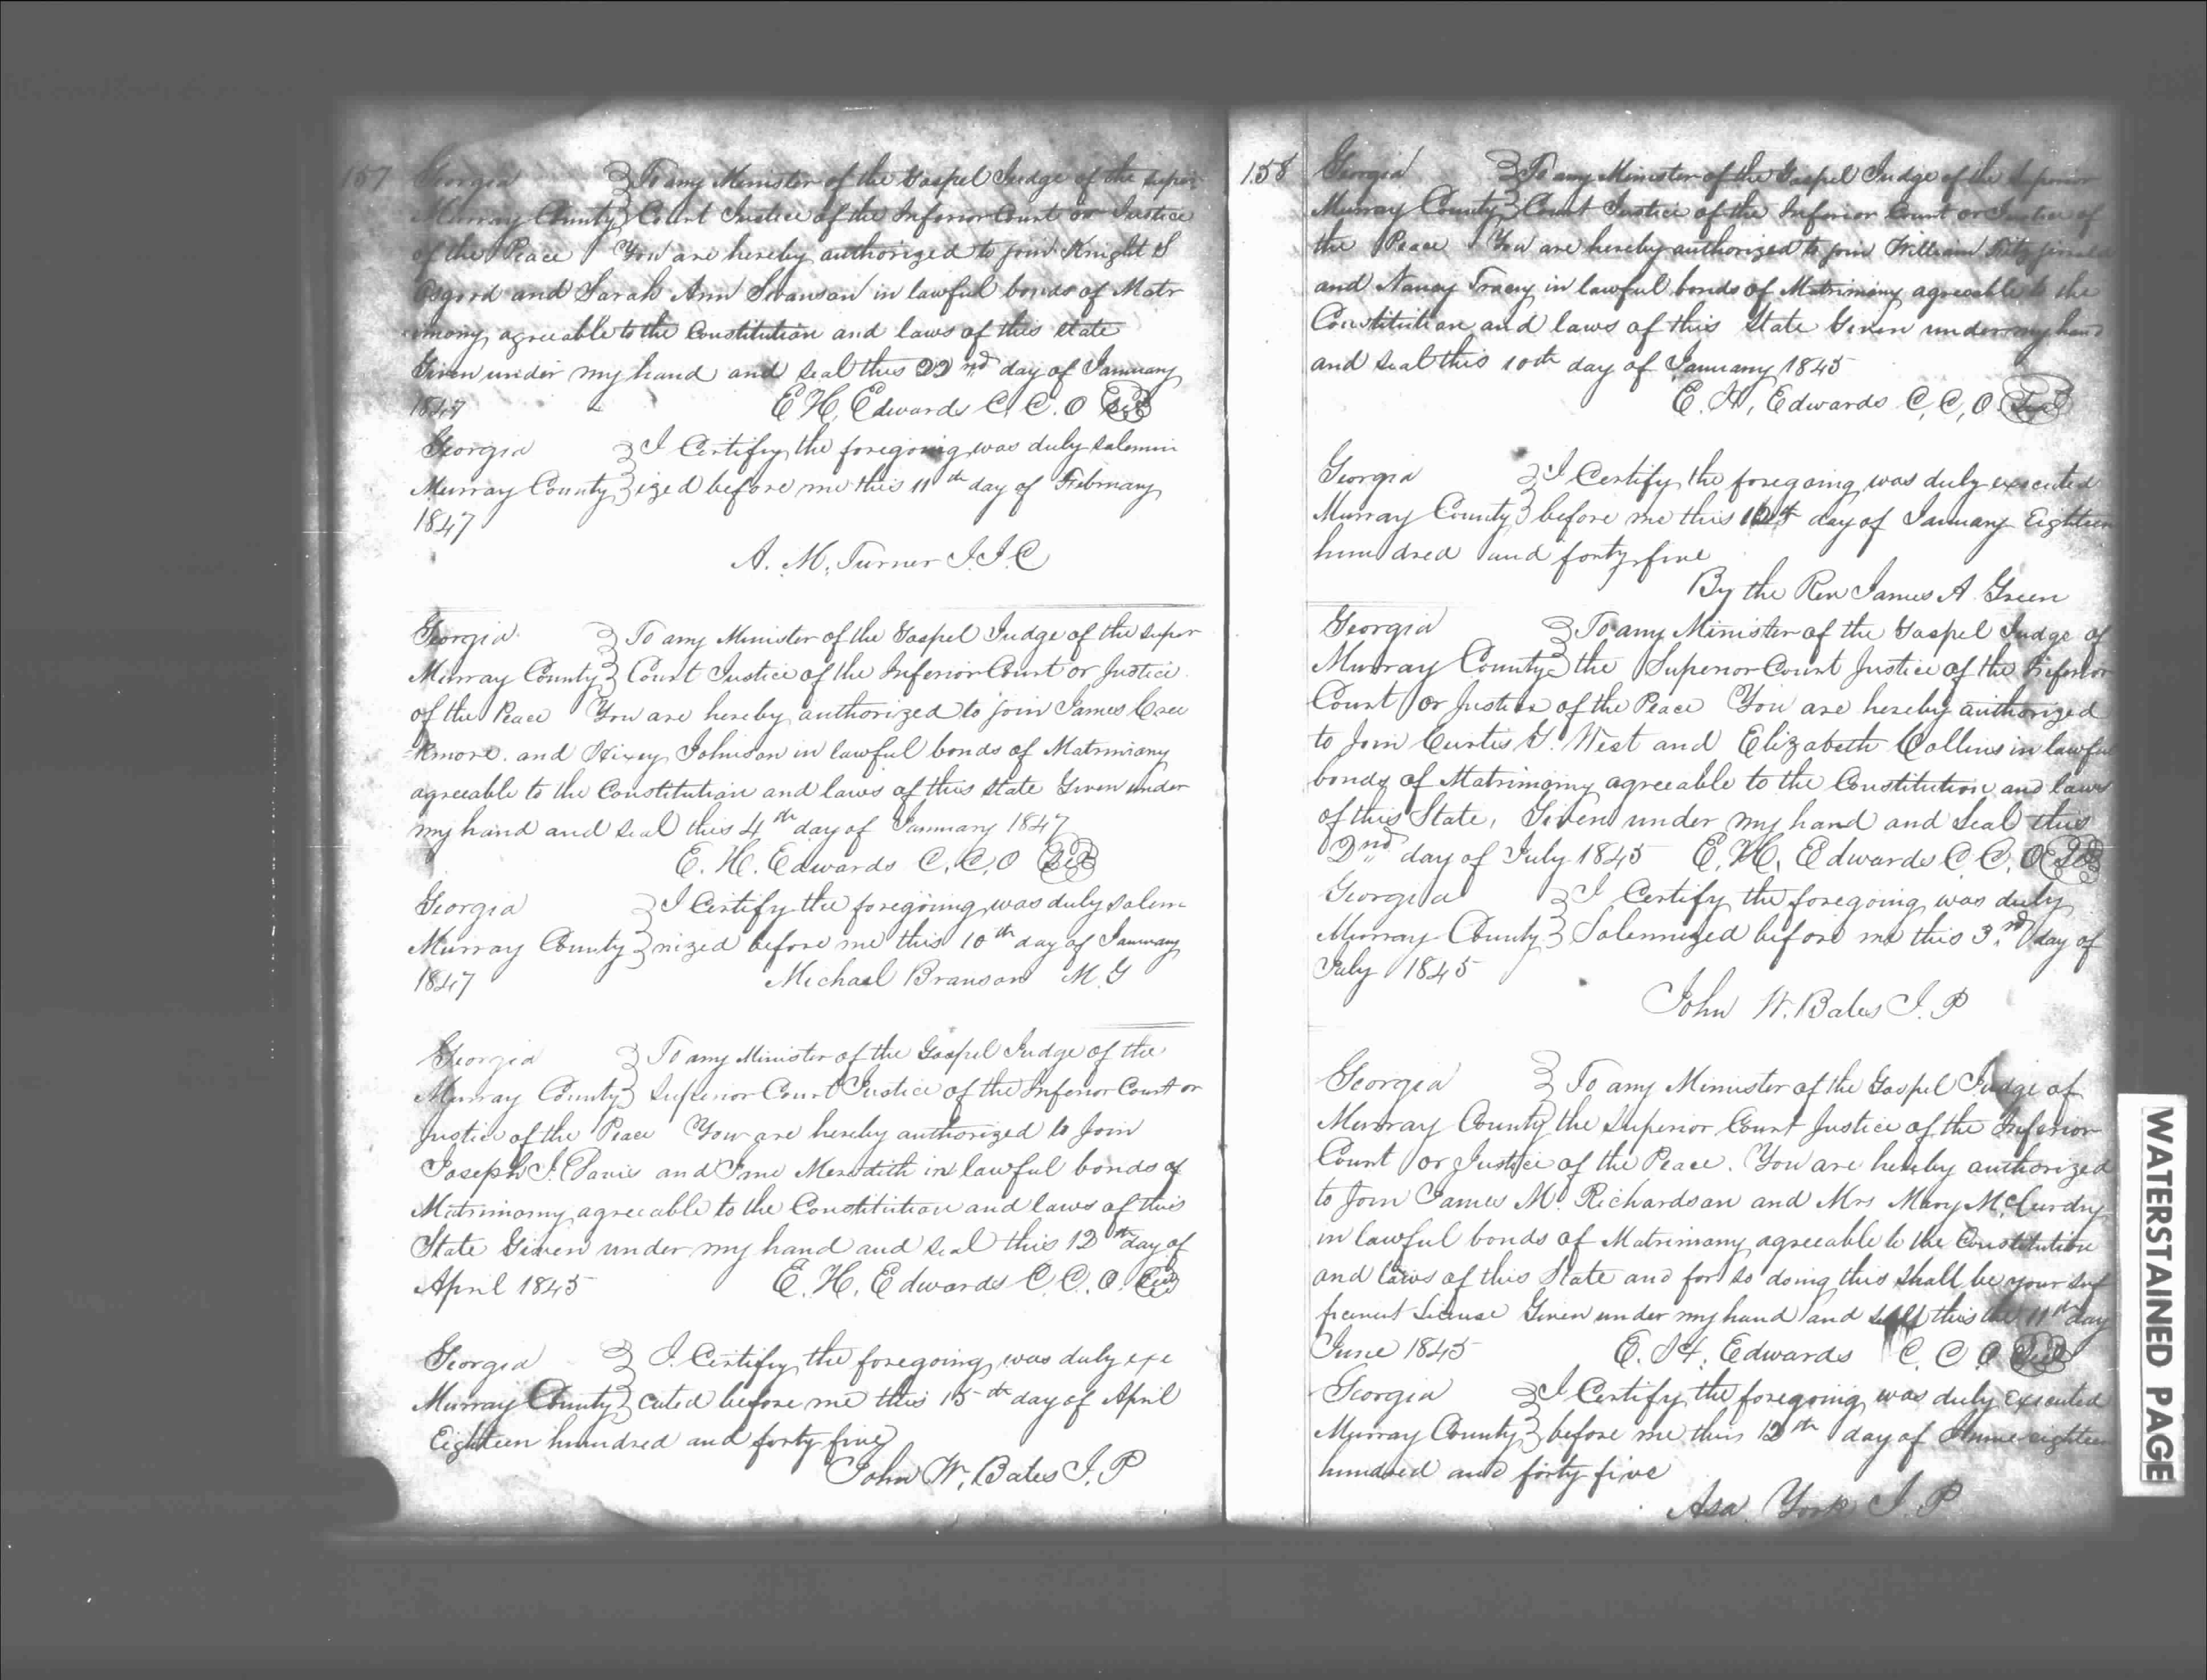 157
Georgia } To any Minister of the Gospel Judge of the Super
Murray County } Court Justice of the Inferior Court or Justice
of the Peace You are hereby authorized to join Knight S
Osgood and Sarah Ann Swanson in lawful bonds of Matr
imony agreeable to the Constitution and laws of this state
Given under my hand and seal this 22nd day of January
1847 E. H. Edwards C. C. O Seal
Georgia } I Certify the foregoing was duly solemn
Murray County } ized before me this 11th day of February
1847
A. M. Turner J. I. C
Georgia } To any Minister of the Gospel Judge of the Super
Murray County } Court Justice of the Inferior Court or Justice
of the Peace You are hereby authorized to join James
and Johnson in lawful bonds of Matrimony
agreeable to the Constitution and laws of this state Given under
my hand and seal this 4th day of January 1847
E. H. Edwards C. C. O Seal
Georgia } I Certify the foregoing was duly solem
Murray County } nized before me this 10th day of January
1847 Michael Branson M. G
Georgia } To any Minister of the Gospel Judge of the
Murray County } Superior Court Justice of the Inferior Court or
Justice of the Peace You are hereby authorized to Join
Joseph J. Davis and Meredith in lawful bonds of
Matrimony agreeable to the Constitution and laws of this
State Given under my hand and seal this 12th day of
April 1845 E. H. Edwards C. C. O. Seal
Georgia } I Certify the foregoing was duly exe
Murray County } cuted before me this 15th day of April
Eighteen hundred and forty five
John W. Bates J. P
158
Georgia } To any Minister of the Gospel Judge of the Superior
Murray County } Court Justice of the Inferior Court or Justice of
the Peace You are hereby authorized to join William Fitzjerrald
and Nancy Tracy in lawful bonds of Matrimony agreeable to the
Constitution and laws of this State Given under my hand
and seal this 10th day of January 1845
E. H. Edwards C. C. O. Seal
Georgia } I Certify the foregoing was duly executed
Murray County } before me this day of January Eighteen
hundred and forty five
By the Rev James A Green
Georgia } To any Minister of the Gospel Judge of
Murray County } the Superior Court Justice of the Inferior
Court or Justice of the Peace You are hereby authorized
to Join Curtis G. West and Elizabeth Collins in lawful
bonds of Matrimony agreeable to the Constitution and laws
of this State, Given under my hand and Seal this
2nd day of July 1845 E. H. Edwards C. C. O Seal
Georgia } I Certify the foregoing was duly
Murray County } Solemnized before me this 3rd day of
July 1845
John W. Bates J. P
Georgia } To any Minister of the Gospel Judge of
Murray County } the Superior Court Justice of the Inferior
Court or Justice of the Peace. You are hereby authorized
to Join James M. Richardson and Mrs Mary McCurdy
in lawful bonds of Matrimony agreeable to the Constitution
and laws of this State and for so doing this shall be your suf
ficient License Given under my hand and seal this the 11th day
June 1845 E. H. Edwards C. C. O Seal
Georgia } I Certify the foregoing was duly executed
Murray County } before me this 12th day of June eighteen
hundred and forty five
Asa York J. P
WATERSTAINED PAGE